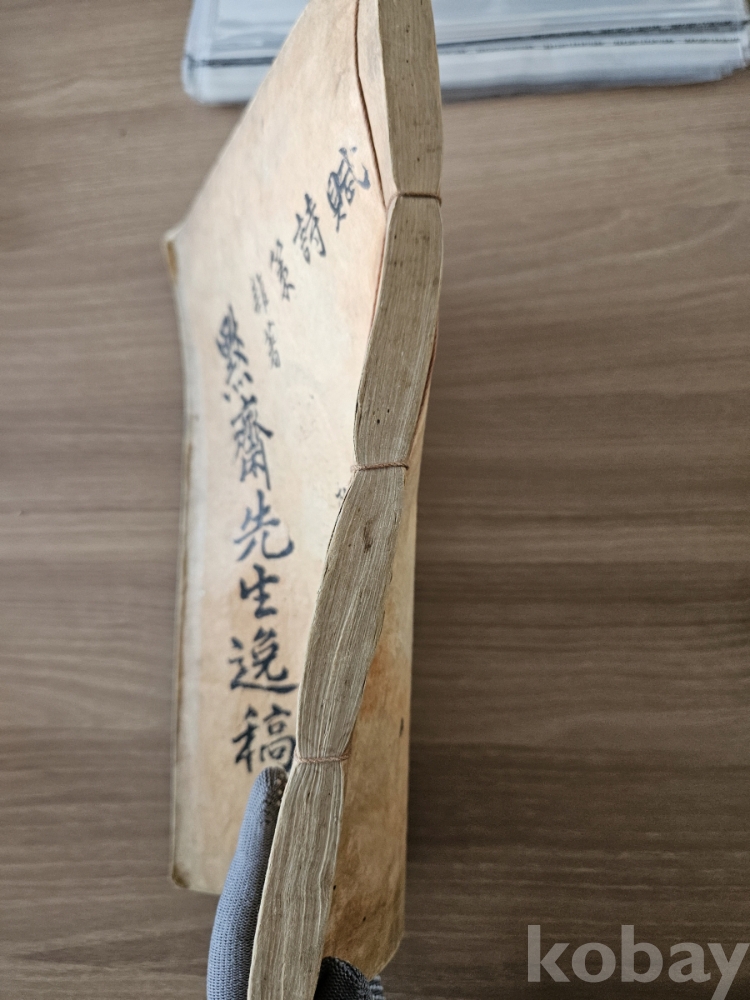 賦
詩
策
雜著
黙齋先生逸稿
kobay